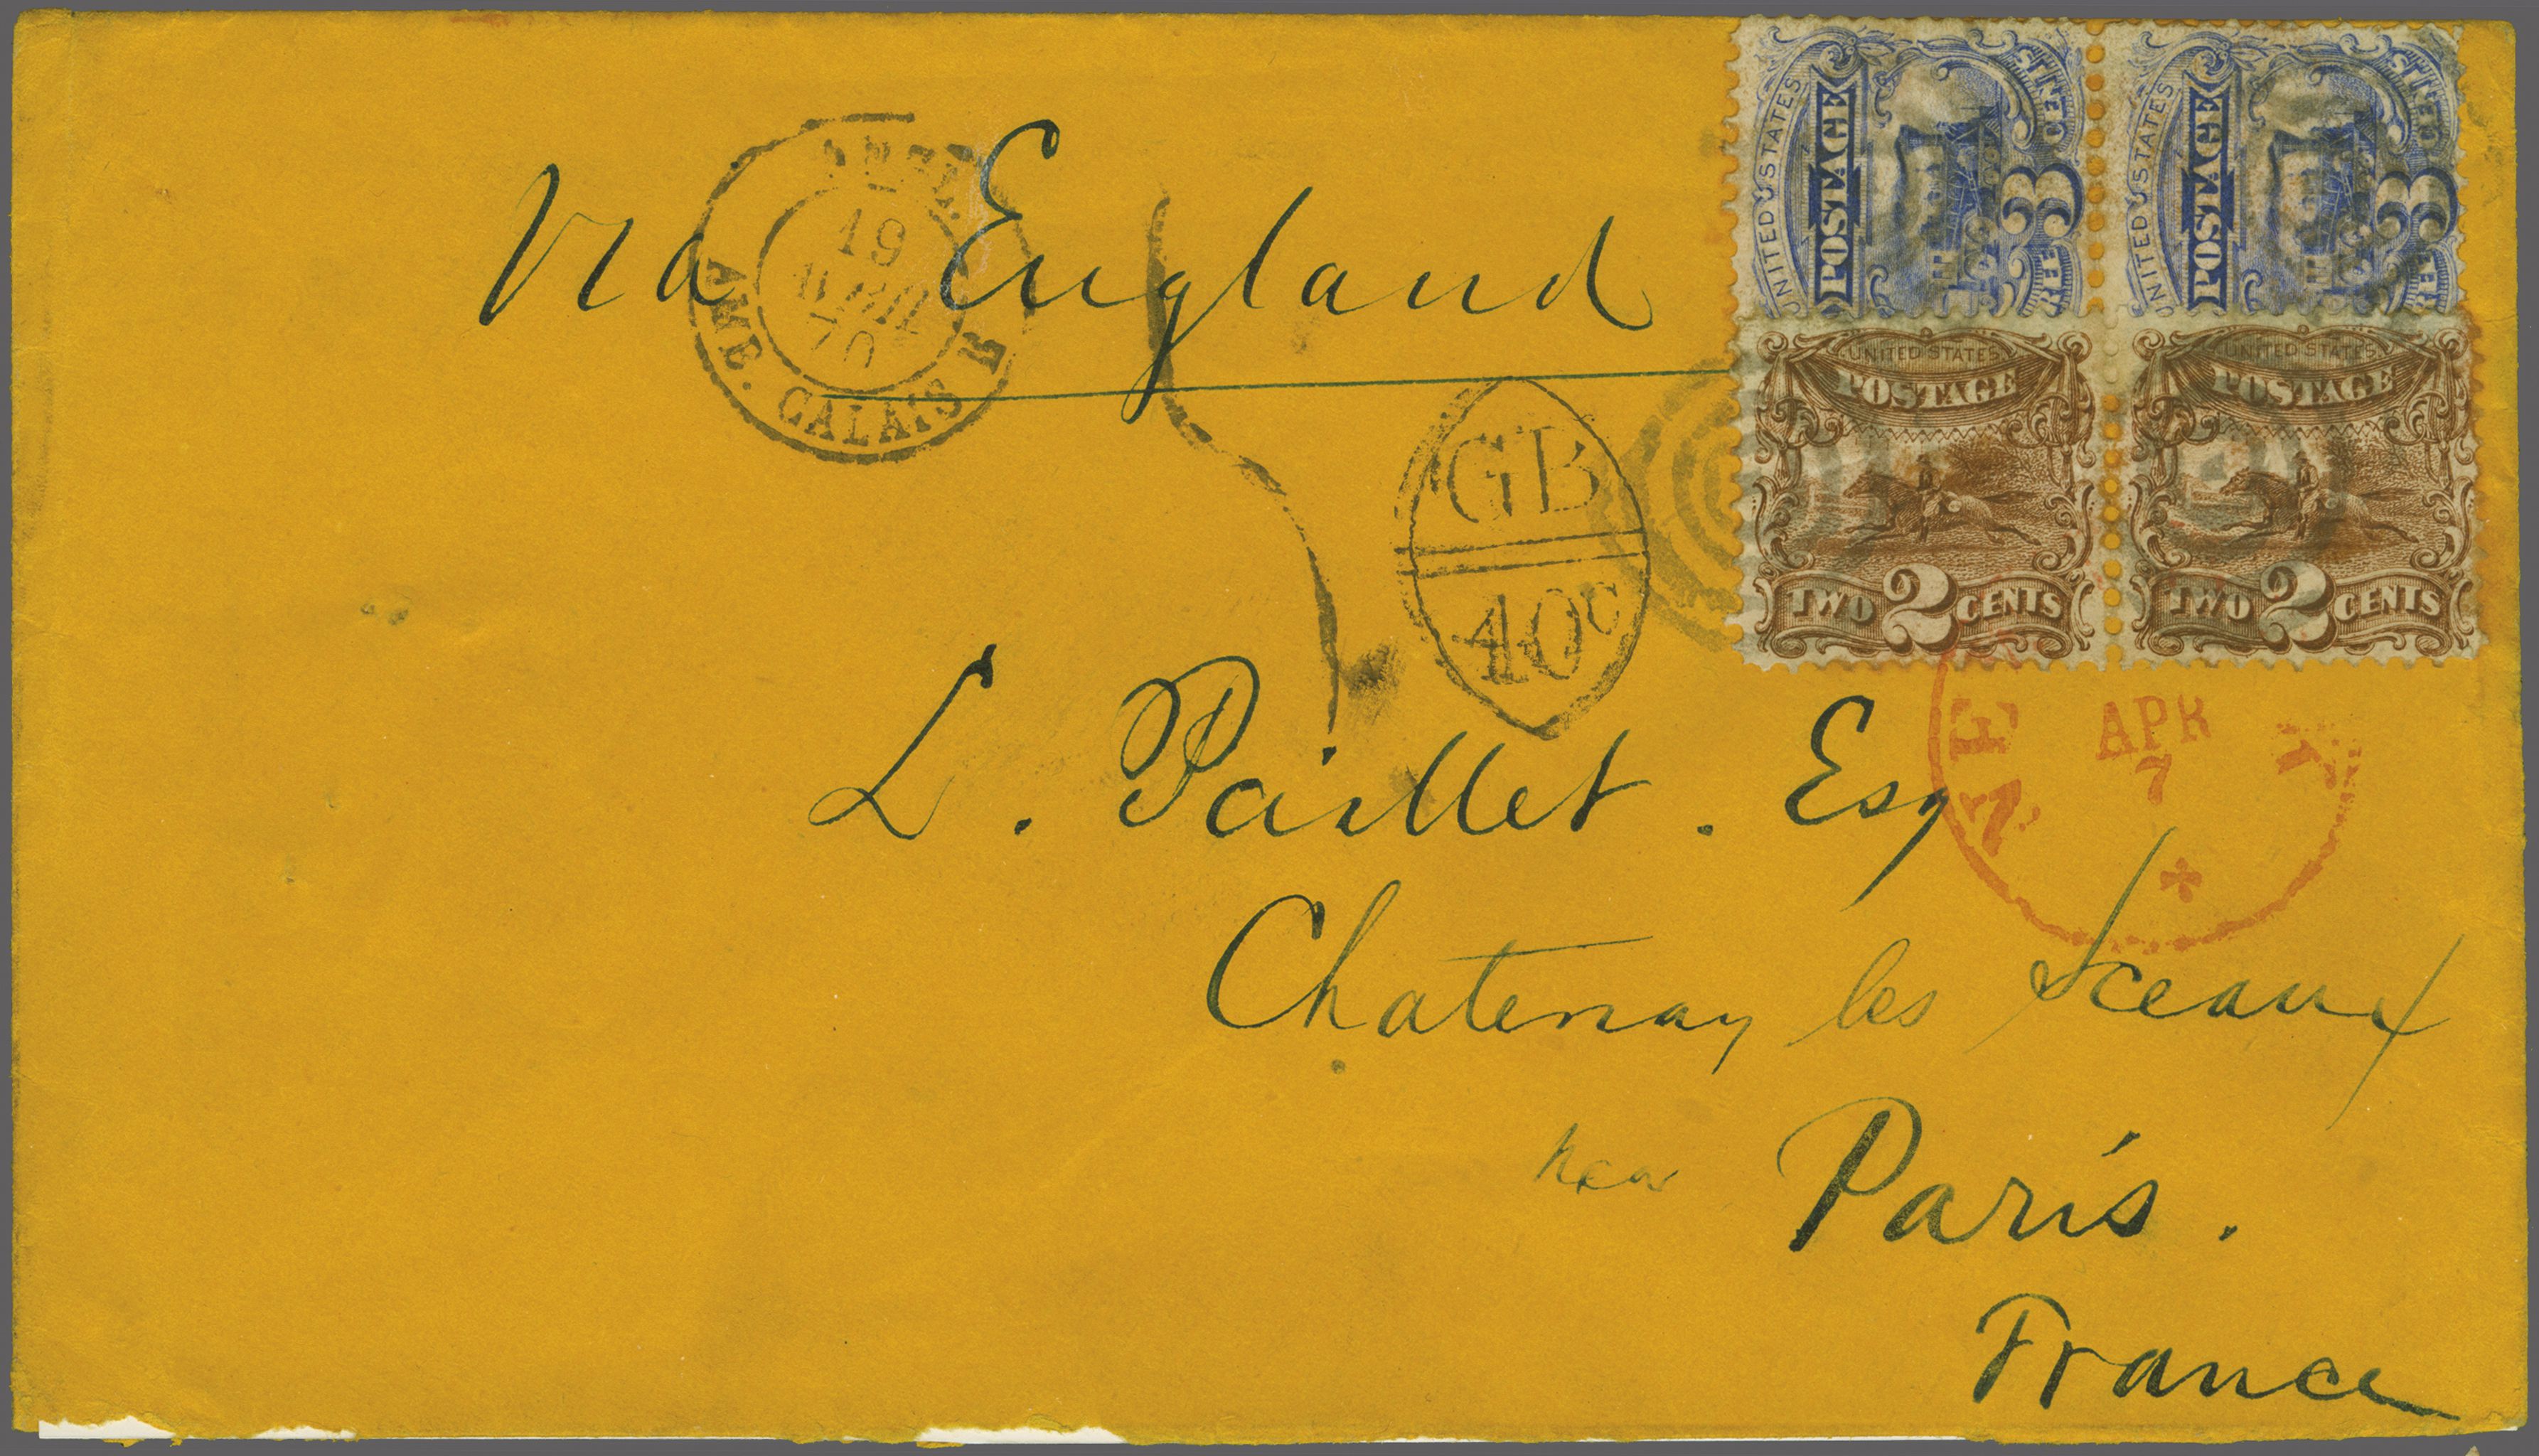 Via England
ANGL.
19
AVRIL
70
AMB. CALAIS
GB
40c
UNITED STATES
POSTAGE
3
THREE CENTS
UNITED STATES
POSTAGE
3
THREE CENTS
UNITED STATES
POSTAGE
TWO 2 CENTS
UNITED STATES
POSTAGE
TWO 2 CENTS
APR
7
L. Paillet. Esq
Chatenay les Sceaux
near Paris.
France